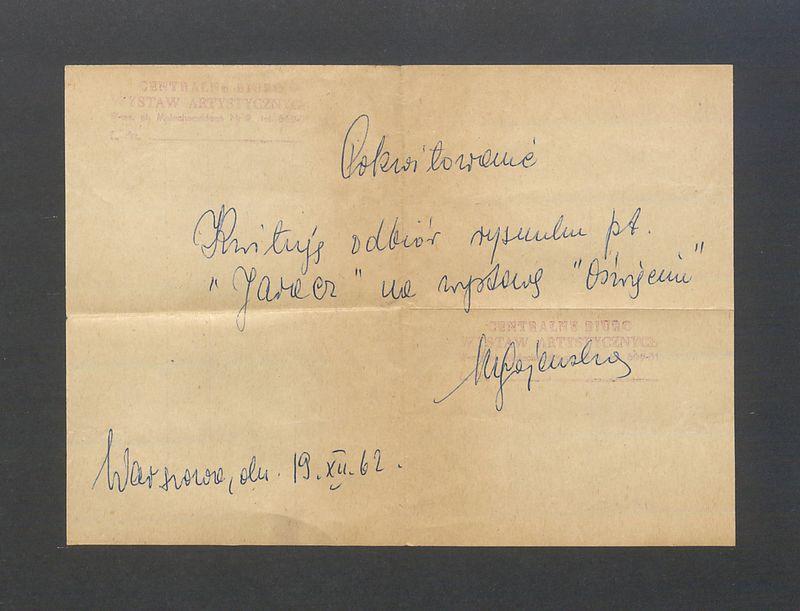 CENTRALNE BIURO
WYSTAW ARTYSTYCZNYCH
W-wa, pl. Małachowskiego Nr 3, tel.
L. dz.
Pokwitowanie
Kwituję odbiór rysunku pt.
"Jaracz" na wystawę "Oświęcim"
CENTRALNE BIURO
WYSTAW ARTYSTYCZNYCH
Warszawa, dn. 19.XII.62.